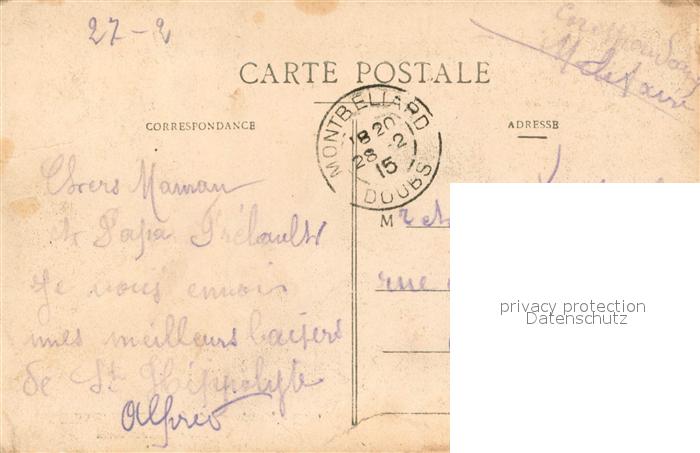 27-2
Correspondance
Militaire
CARTE POSTALE
CORRESPONDANCE
ADRESSE
MONTBELIARD
18 20
28 2
15
DOUBS
Chers Maman
et Papa Trébault
Je vous envoie
mes meilleurs baisers
de St Hippolyte
Alfred
M
rue
privacy protection
Datenschutz